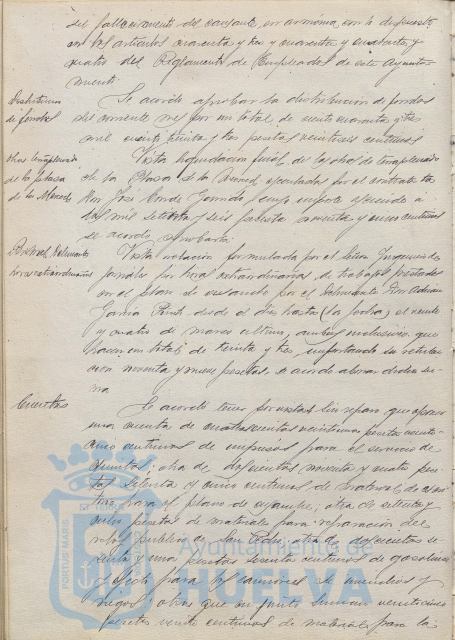 del fallecimiento del causante, en armonía con lo dispuesto
en los artículos cuarenta y tres y cuarenta y cuatro, y
cuatro del Reglamento de Empleados de este Ayunta-
miento.
Distribución
de fondos
Se acordó aprobar la distribución de fondos
del corriente mes por un total de ciento cuarenta y tres
mil ciento treinta y tres pesetas veintiseis centimos
Obras templete
de la plaza
de la Merced
Vista liquidación final de las obras de
de la Plaza de la Merced, ejecutadas por el contratista
Don José Conde Garrido, cuyo importe asciende a
mil setenta y seis pesetas cuarenta y cinco centimos
se acordó aprobarla.
Personal, Delineante
horas extraordinarias
Vista relación formulada por el Señor Ingeniero de
jornales por horas extraordinarias de trabajos prestados
en el plan de ensanche por el Delineante Don Adrián
García desde el dies hasta (la fecha) el veinte
y cuatro de marzo ultimo, ambos inclusives, que
hacen un total de treinta y tres, importando su retribu-
ción noventa y nueve pesetas, se acordó abonar dicha su-
ma
Cuentas
Se acordó tener por vistas sin reparo que oponer
una cuenta de cuatrocientas veintiuna pesetas cuenta
cinco centimos de impresos para el servicio de
Quintas; otra de doscientas noventa y cuatro pese-
tas setenta y cinco centimos de material de
para el plano de ensanche; otra de setenta y
ocho pesetas de materiales para reparación del
reloj publico de San Pedro; otra de doscientas se-
senta y una pesetas sesenta centimos de gasolina
y efectos para los camiones de incendios y
riegos; otras que en junto suman veinticinco
pesetas veinte centimos de materiales para la
PORTUS MARIS
Ayuntamiento de
HUELVA